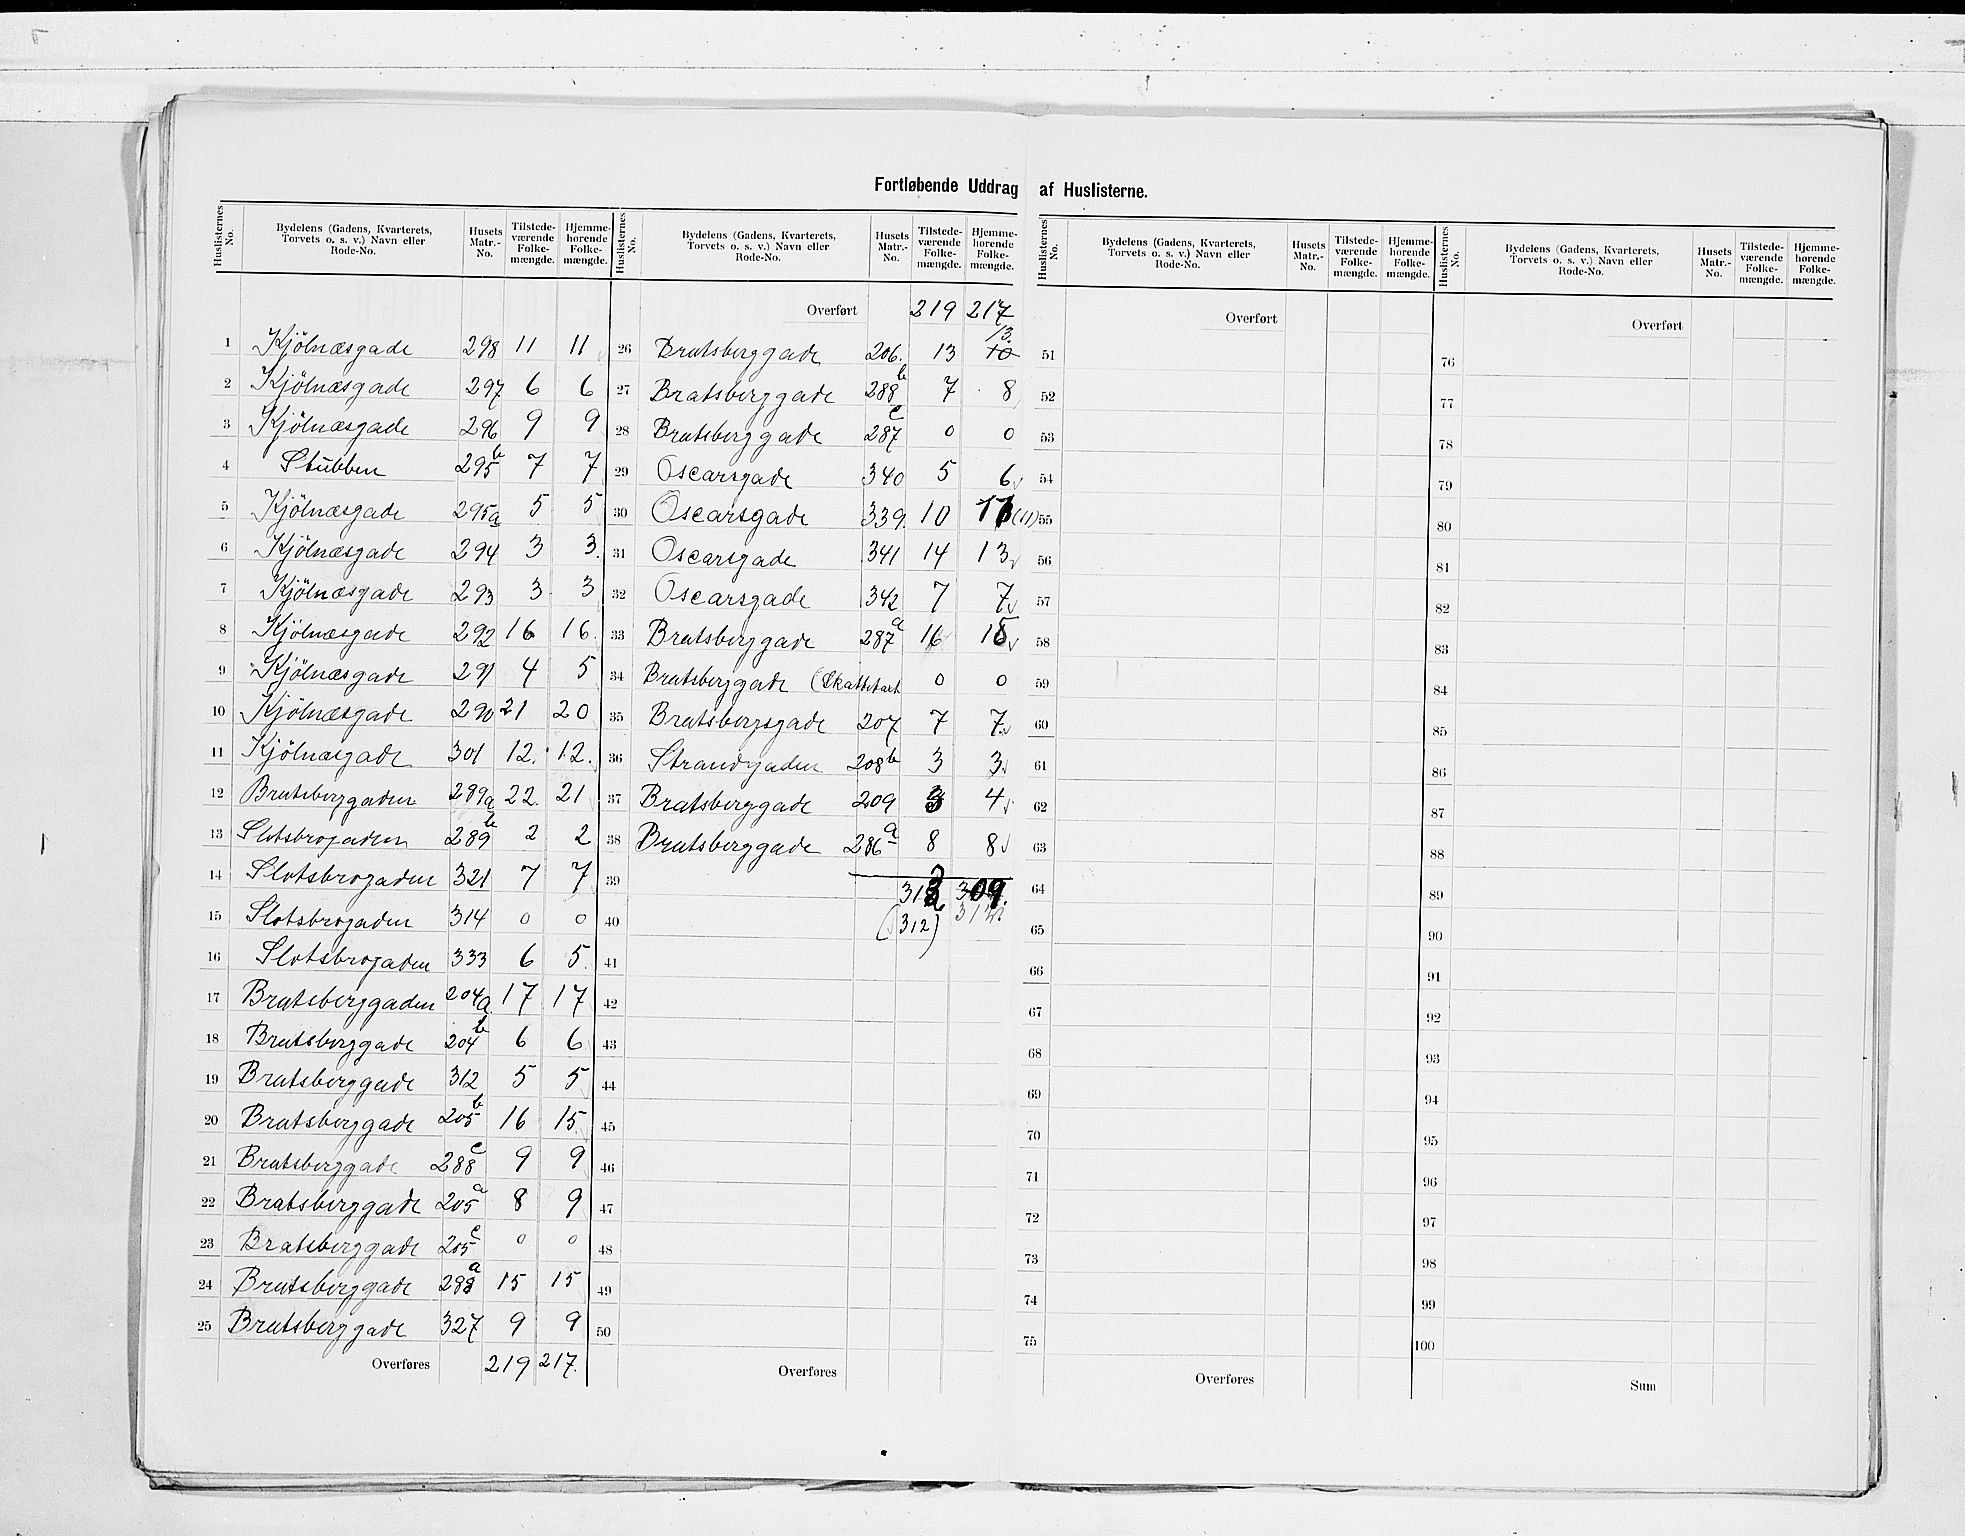 Fortløbende Uddrag af Huslisterne.
Huslisternes No. | Bydelens (Gadens, Kvarterets, Torvets o. s. v.) Navn eller Rode-No. | Husets Matr.-No. | Tilstede-værende Folke-mængde. | Hjemme-hørende Folke-mængde.
1 Kjölnæsgade 298 11 11
2 Kjölnæsgade 297 6 6
3 Kjölnæsgade 296 9 9
4 Stubben 295b 7 7
5 Kjölnæsgade 295a 5 5
6 Kjölnæsgade 294 3 3.
7 Kjölnæsgade 293 3 3
8 Kjölnæsgade 292 16 16.
9 Kjölnæsgade 291 4 5
10 Kjölnæsgade 290 21 20
11 Kjölnæsgade 301 12. 12.
12 Bratsberggaden 289a 22. 21
13 Slotsbrogaden 289b 2 2
14 Slotsbrogaden 321 7 7
15 Slotsbrogaden 314 0 0
16 Slotsbrogaden 333 6 5.
17 Bratsberggaden 204a 17 17
18 Bratsberggade 204b 6 6
19 Bratsberggade 312 5 5
20 Bratsberggade 205b 16 15
21 Bratsberggade 288c 9 9
22 Bratsberggade 205a 8 9
23 Bratsberggade 205c 0 0
24 Bratsberggade 288a 15 15
25 Bratsberggade 327 9 9
Overføres 219 217.
Huslisternes No. | Bydelens (Gadens, Kvarterets, Torvets o. s. v.) Navn eller Rode-No. | Husets Matr.-No. | Tilstede-værende Folke-mængde. | Hjemme-hørende Folke-mængde.
Overført 219 217
13.
26 Bratsberggade 206. 13 10
27 Bratsberggade 288b 7 8
28 Bratsberggade 287c 0 0
29 Oscarsgade 340 5 6
30 Oscarsgade 339. 10 (11)
31 Oscarsgade 341 14 13
32 Oscarsgade 342 7 7
33 Bratsberggade 287a 16 15
34 Bratsberggade 0 0
35 Bratsbergsgade 207 7 7.
36 Strandgaden 208b 3 3
37 Bratsberggade 209 3 4
38 Bratsberggade 286a 8 8
39 309.
40 (312)
41
42
43
44
45
46
47
48
49
50
Overføres
Huslisternes No. | Bydelens (Gadens, Kvarterets, Torvets o. s. v.) Navn eller Rode-No. | Husets Matr.-No. | Tilstede-værende Folke-mængde. | Hjemme-hørende Folke-mængde.
Overført
51
52
53
54
55
56
57
58
59
60
61
62
63
64
65
66
67
68
69
70
71
72
73
74
75
Overføres
Huslisternes No. | Bydelens (Gadens, Kvarterets, Torvets o. s. v.) Navn eller Rode-No. | Husets Matr.-No. | Tilstede-værende Folke-mængde. | Hjemme-hørende Folke-mængde.
Overført
76
77
78
79
80
81
82
83
84
85
86
87
88
89
90
91
92
93
94
95
96
97
98
99
100
Sum